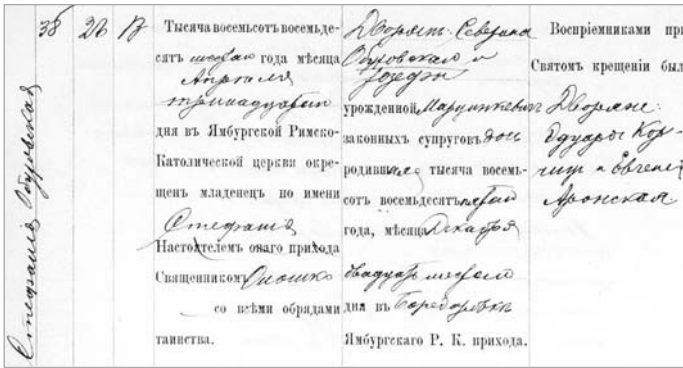 Стефания Обуховская
38
26
13
Тысяча восемьсотъ восемьде-
сятъ шестаго года мѣсяца
Апрѣля
тринадцатаго
дня въ Ямбургской Римско-
Католической церкви окре-
щенъ младенецъ по имени
Стефанія
Настоятелемъ онаго прихода
Священникомъ
со всѣми обрядами
таинства.
Дворянъ: Северина
и
Юзефы
урожденной Марцинкевичъ
законныхъ супруговъ дочь
родившаяся тысяча восемь-
сотъ восемьдесятъ пятаго
года, мѣсяца Декабря
двадцать шестаго
дня въ
Ямбургскаго Р. К. прихода.
Воспріемниками при
Святомъ крещеніи был
Дворяне:
Эдуардъ Кор-
и Евгенія